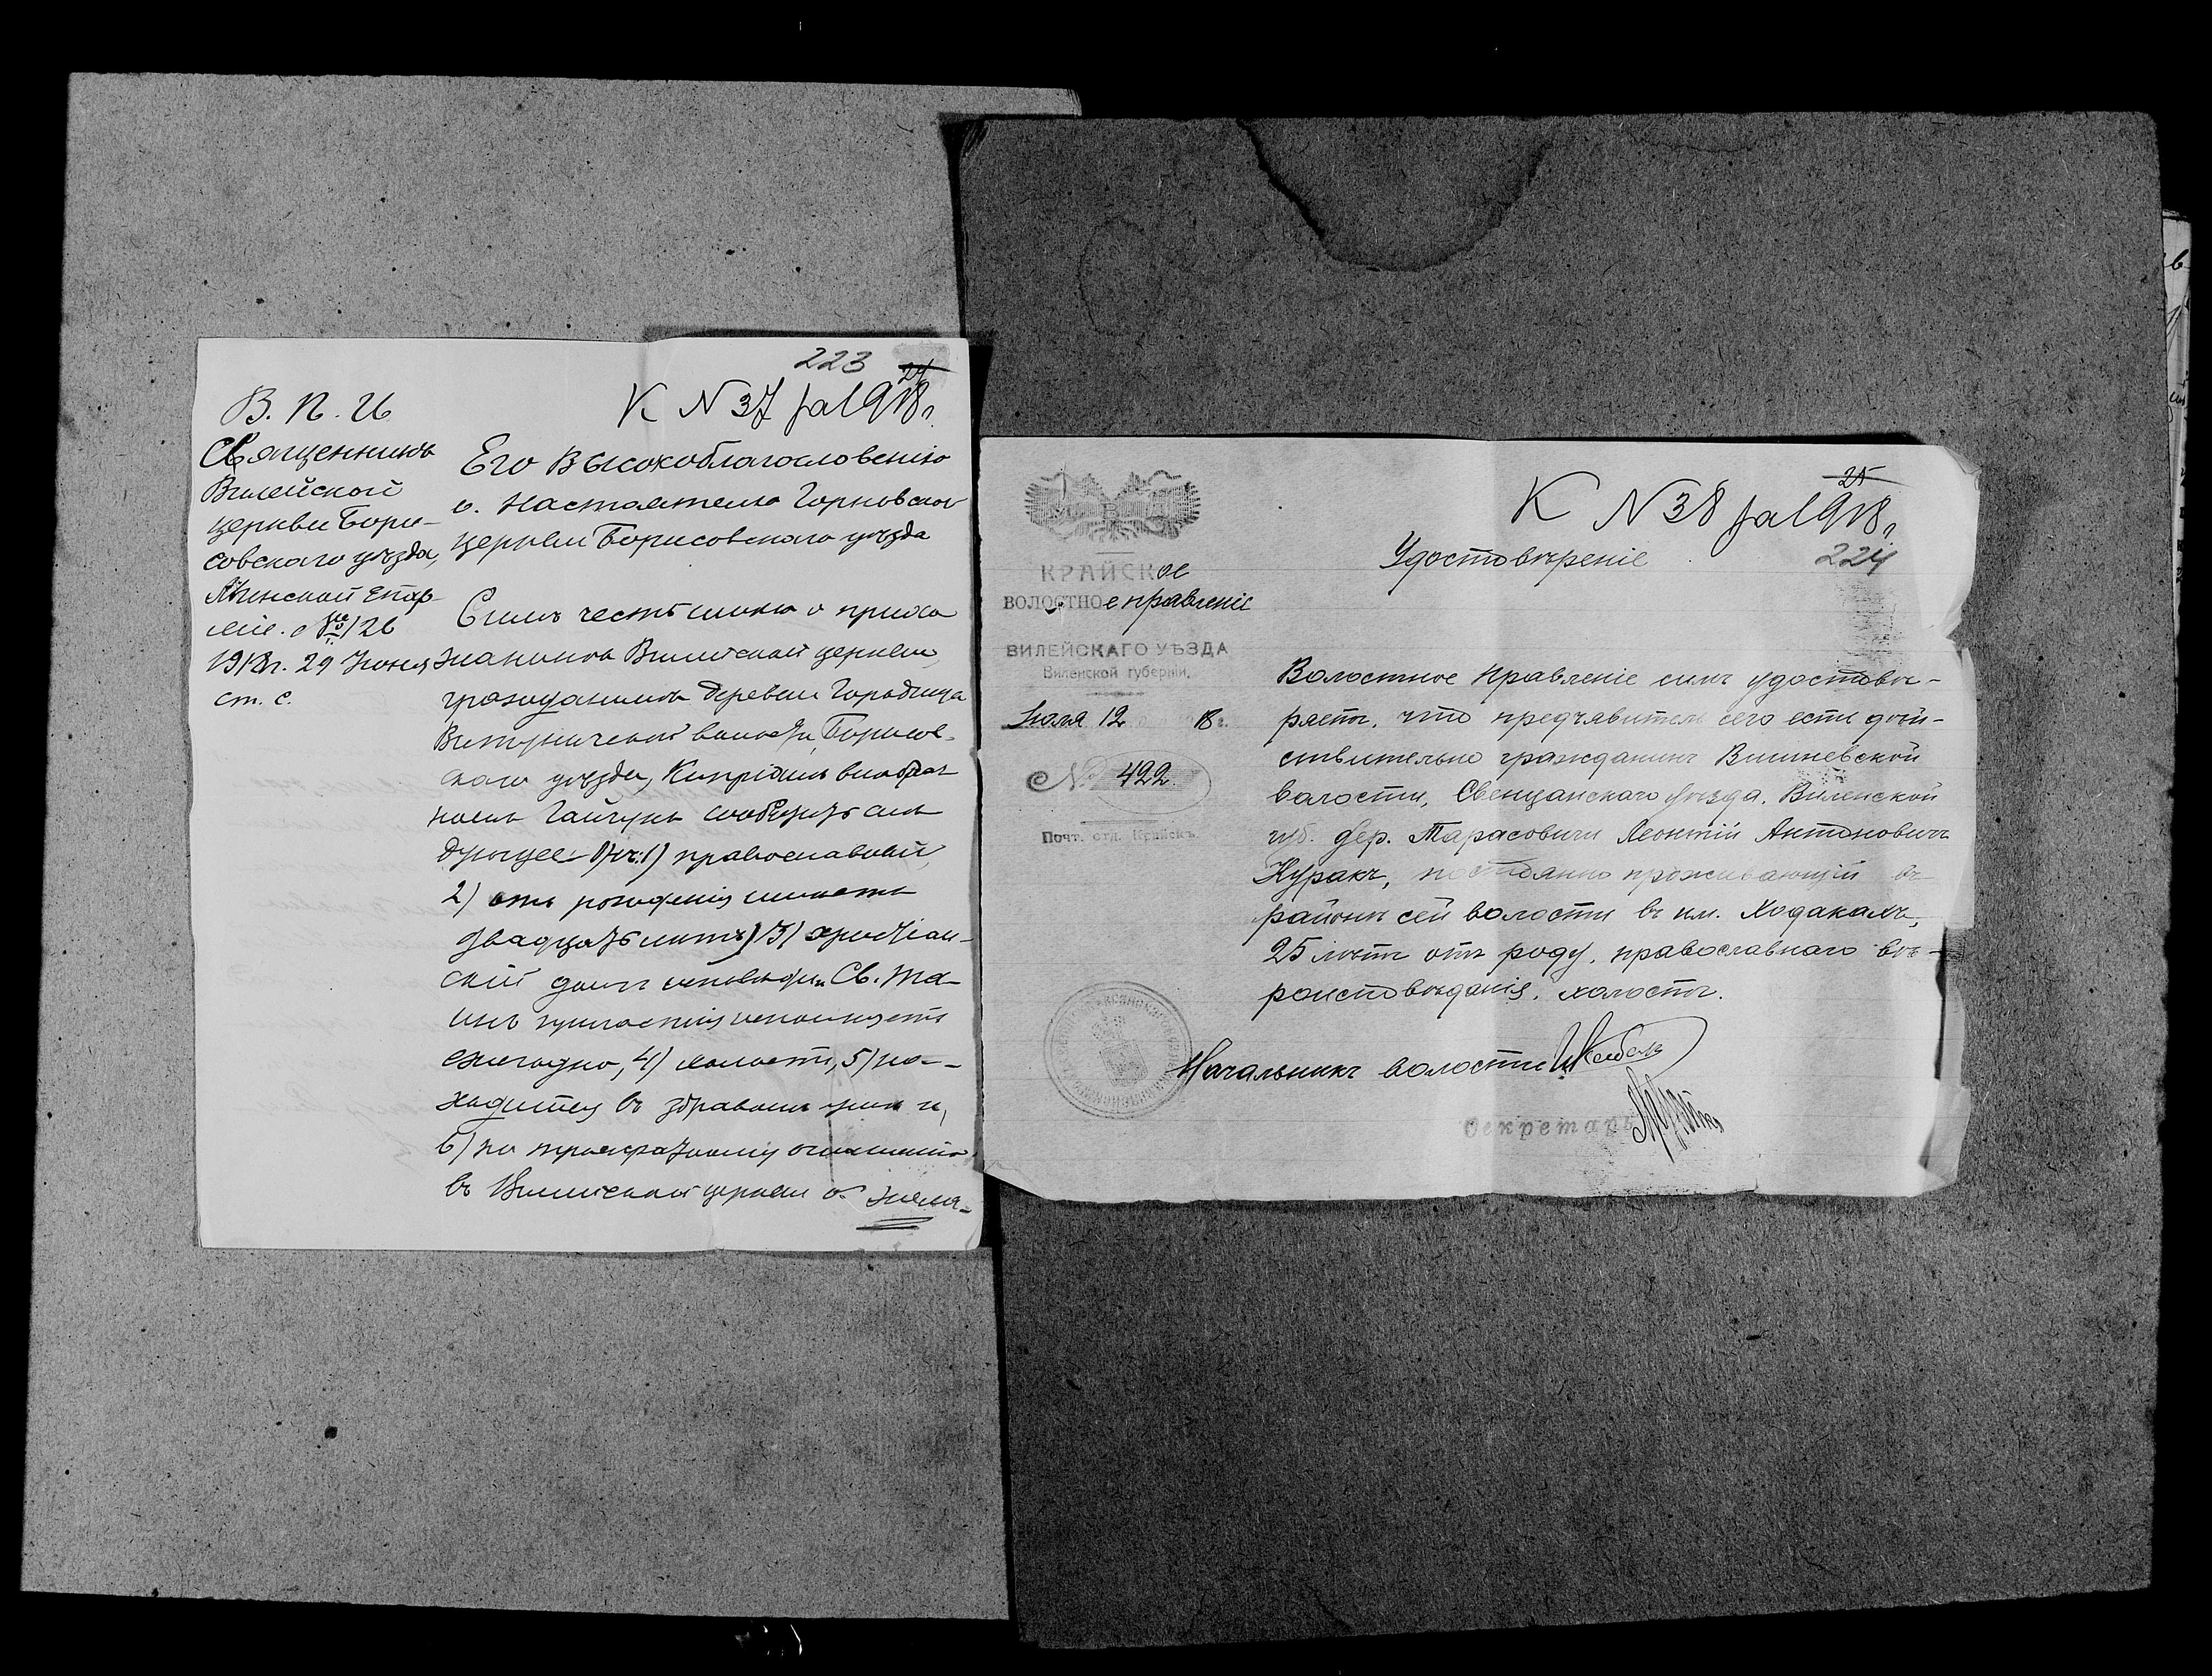 223
24
К N 37 за 1918 г.
В. П. И
Священникъ
Вилейской
церкви Бори-
совскаго уѣзда,
Минской Епар
хіи. № 126
1918 г. 29 Іюня
ст. с.
Его Высокоблагословенію
о. Настоятелю Горновской
церкви Борисовскаго уѣзда
Симъ честь имѣю о прихо
жанинѣ Вилейской церкви,
гражданинѣ деревни Городища
волости, Борисов-
скаго уѣзда, Кипріанъ
Гайчукъ сообщить слѣ
дующее: 1) православный,
2) отъ рожденія имѣетъ
двадцать лѣтъ, 3) христіан-
скій долгъ исповѣди и Св. Та-
инъ причастія исполняетъ
ежегодно, 4) холостъ, 5) на-
ходится въ здравомъ умѣ и,
6) по троекратному оглашенію
въ Вилейской церкви о. жела-
25
К N 38 за 1918 г.
224
Удостовѣреніе
М В Д
КРАЙСКое
ВОЛОСТНОе правленіе
ВИЛЕЙСКАГО УѢЗДА
Виленской губерніи.
Іюля 12 18 г.
№ 422
Почт. отд. Крайскъ.
Волостное Правленіе симъ удостовѣ-
ряетъ, что предъявитель сего есть дѣй-
ствительно гражданинъ Вишневской
волости, Свенцянскаго уѣзда, Виленской
губ. дер. Тарасовичи Леонтій Антоновичъ
Куракъ, постоянно проживающій въ
районѣ сей волости въ им. Ходакахъ,
25 лѣтъ отъ роду, православнаго вѣ-
роисповѣданія, холостъ.
Начальникъ волости
Секретарь